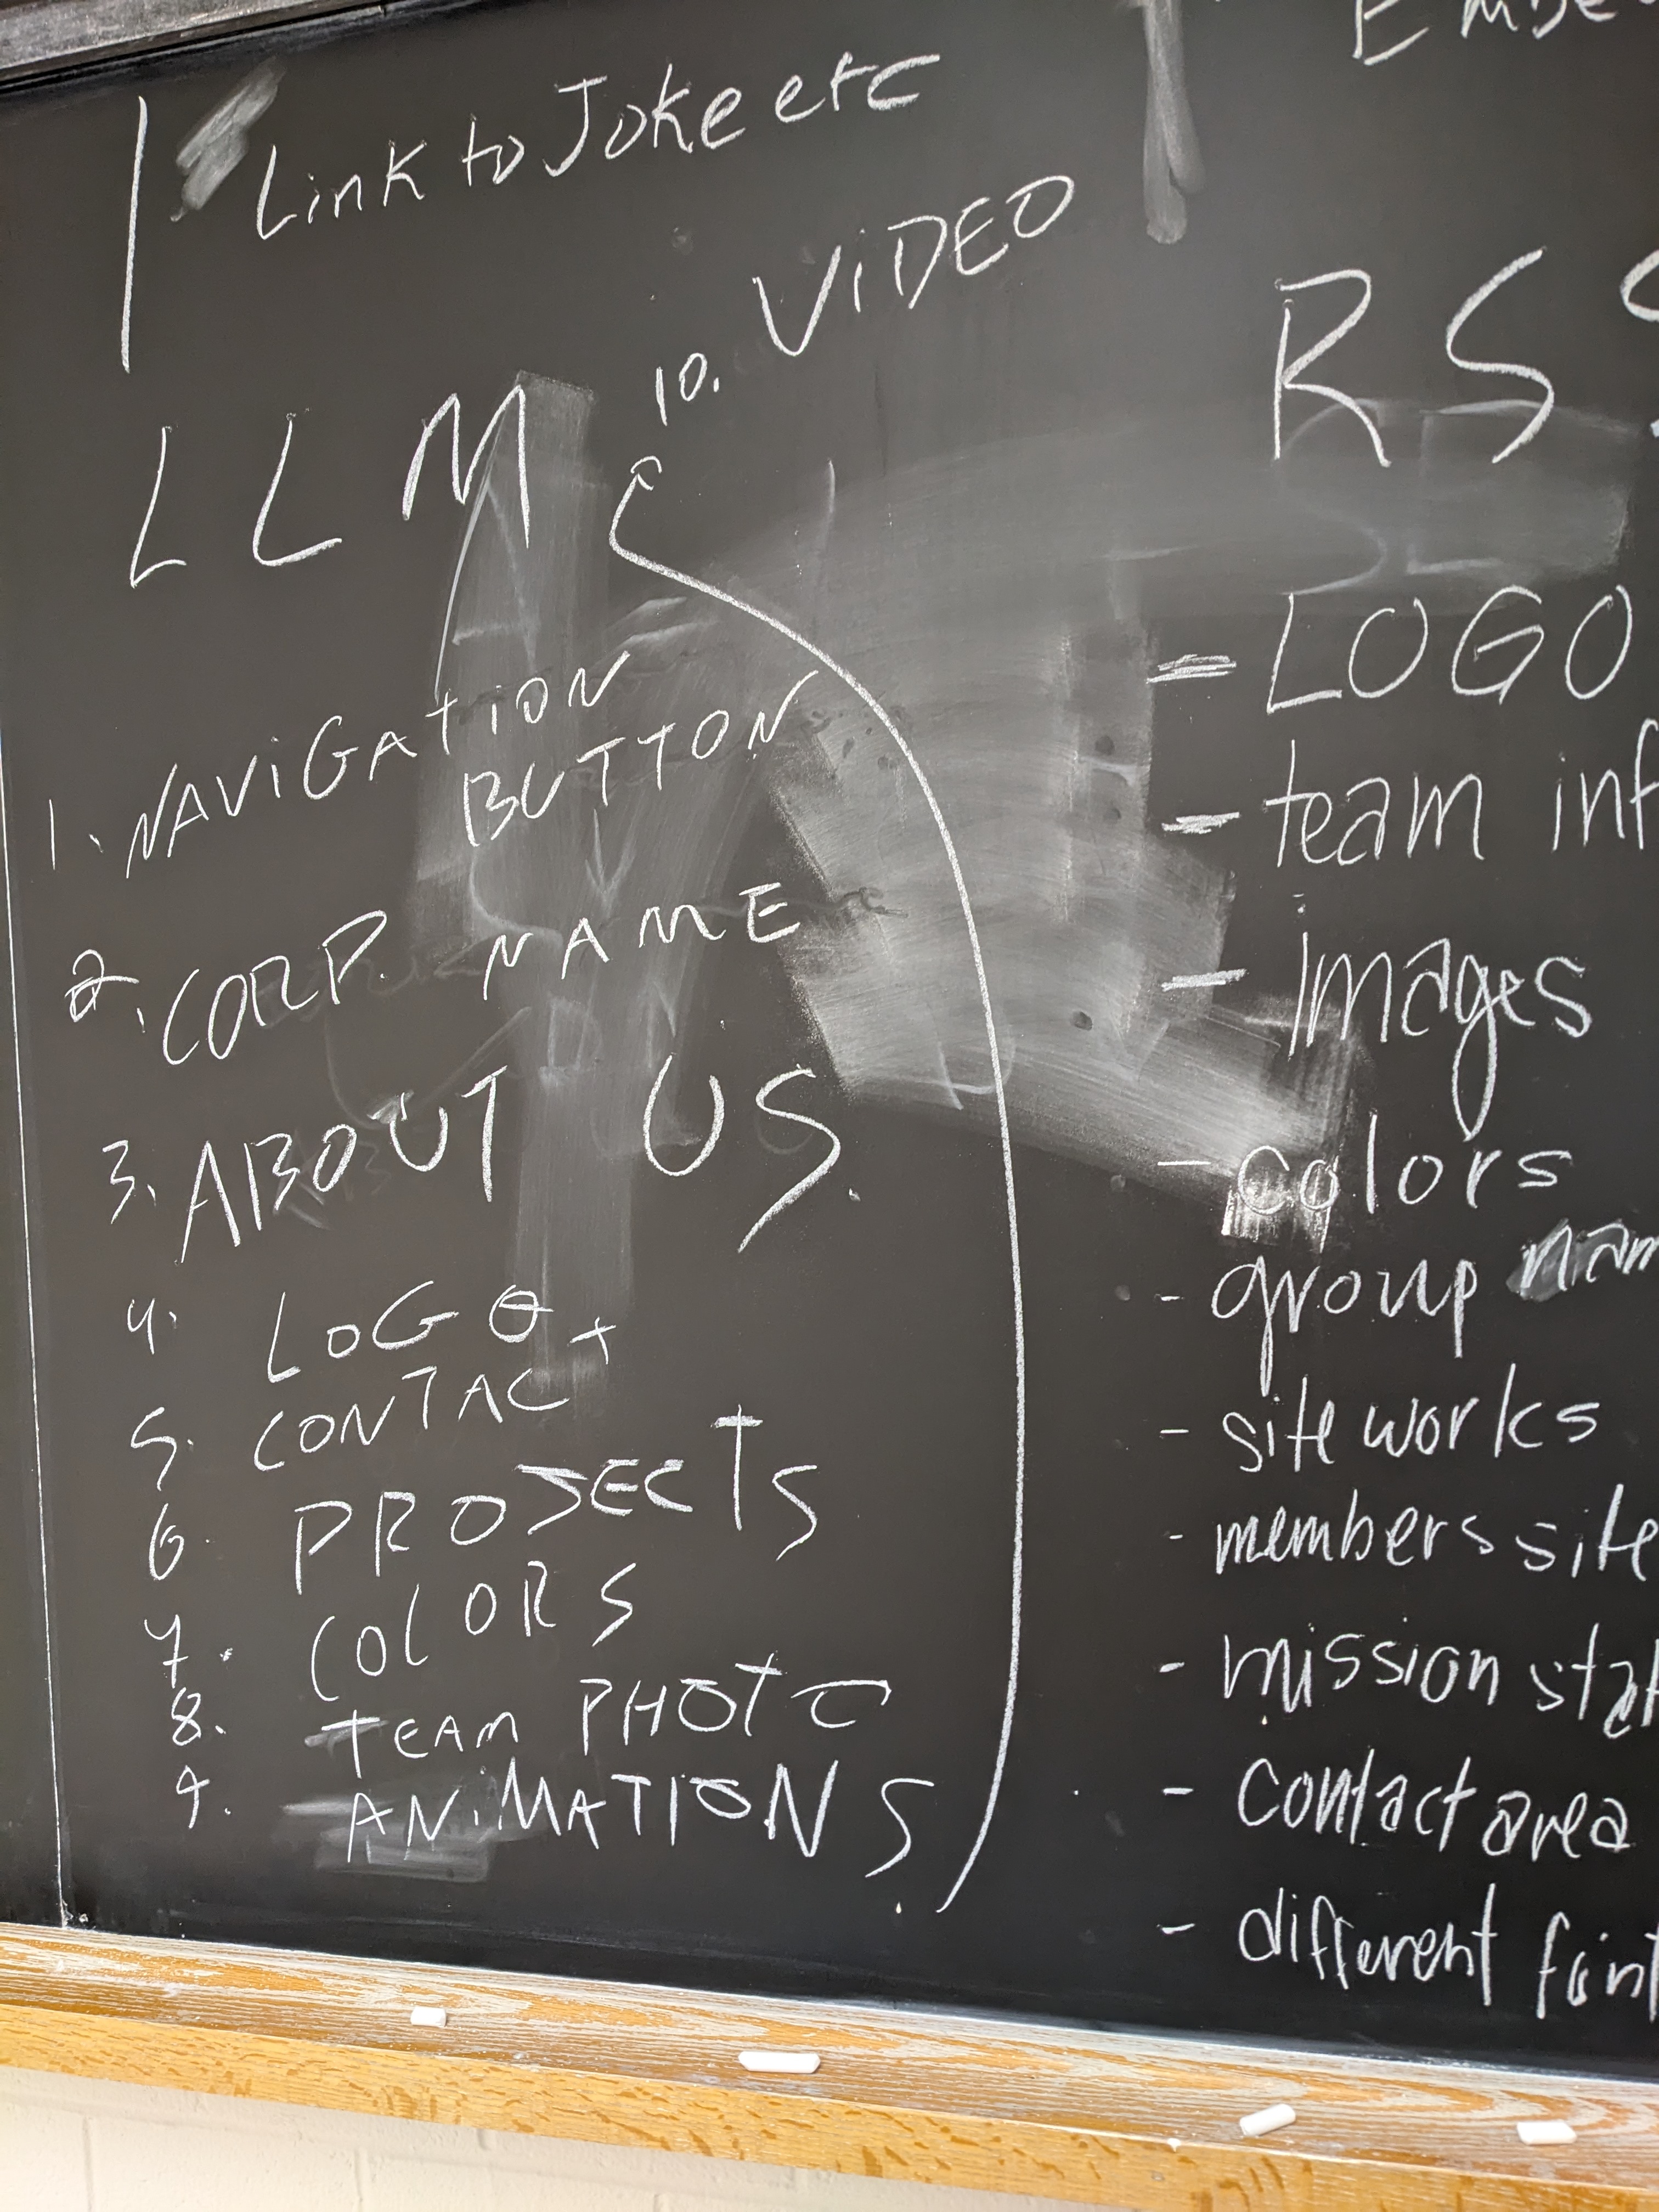 Link to Joke etc
10. ViDEO
LLM
1. NAViGATiON
BUTTON
2. CORP. NAME
3. ABOUT US.
4. LOGO
5. CONTACT
6. PROJECTS
7. COLORS
8. TEAM PHOTO
9. ANiMATIONS
RS
- LOGO
- team inf
- images
- colors
- group nam
- site works
- members site
- mission stat
- contact area
- different font